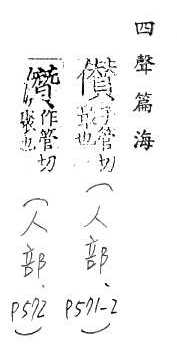 四聲篇海
儧子管切聚也(人部.P571-2)
作管切(人部.P572)